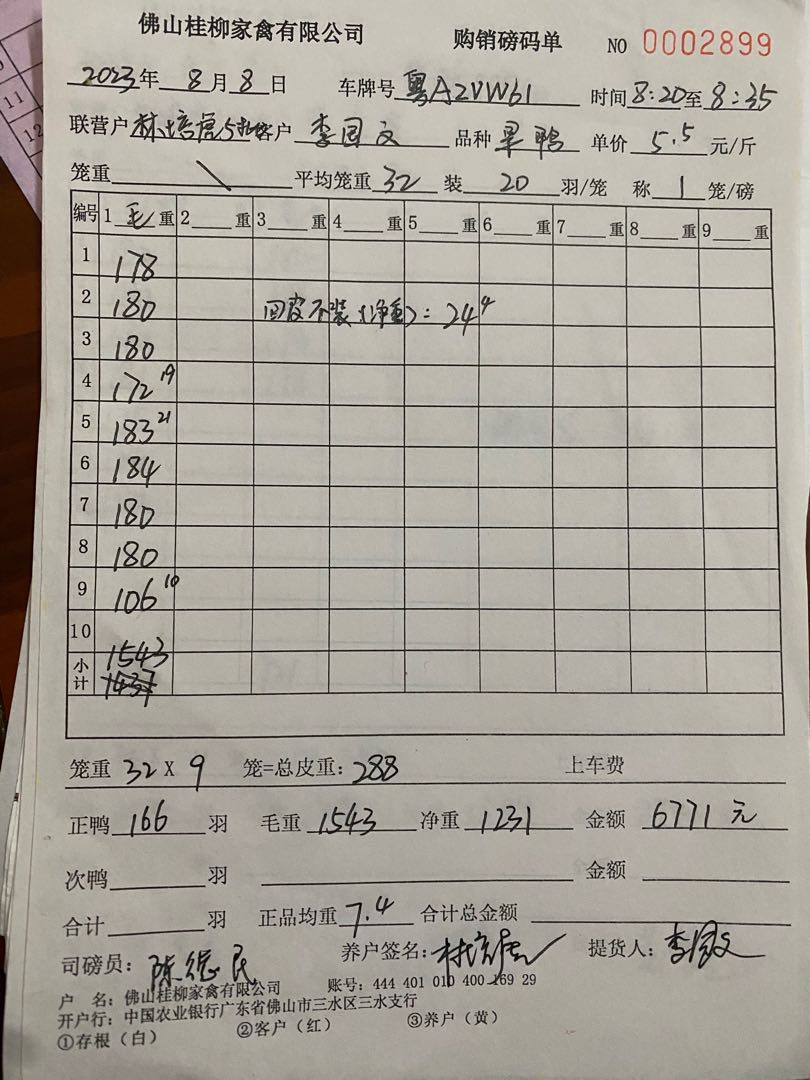 佛山桂柳家禽有限公司 购销磅码单 NO 0002899
2023年 8月8日 车牌号 粤AZVW61 时间8:20至8:35
联营户 林培虎 客户 李国文 品种 果鸭 单价 5.5 元/斤
笼重 \ 平均笼重 32 装 20 羽/笼 称 1 笼/磅
编号 1 毛 重 2 重 3 重 4 重 5 重 6 重 7 重 8 重 9 重
1 178
2 180 回皮不装(净重): 24⁴
3 180
4 172 19
5 183 21
6 184
7 180
8 180
9 106 10
10
小计 1543
1437
笼重 32 X 9 笼=总皮重: 288 上车费
正鸭 166 羽 毛重 1543 净重 1231 金额 6771 元
次鸭 羽 金额
合计 羽 正品均重 7.4 合计总金额
司磅员: 陈德民 养户签名: 林培虎 提货人: 李国文
户 名: 佛山桂柳家禽有限公司 账号: 444 401 010 400 169 29
开户行: 中国农业银行广东省佛山市三水区三水支行
①存根（白） ②客户（红） ③养户（黄）
11
12